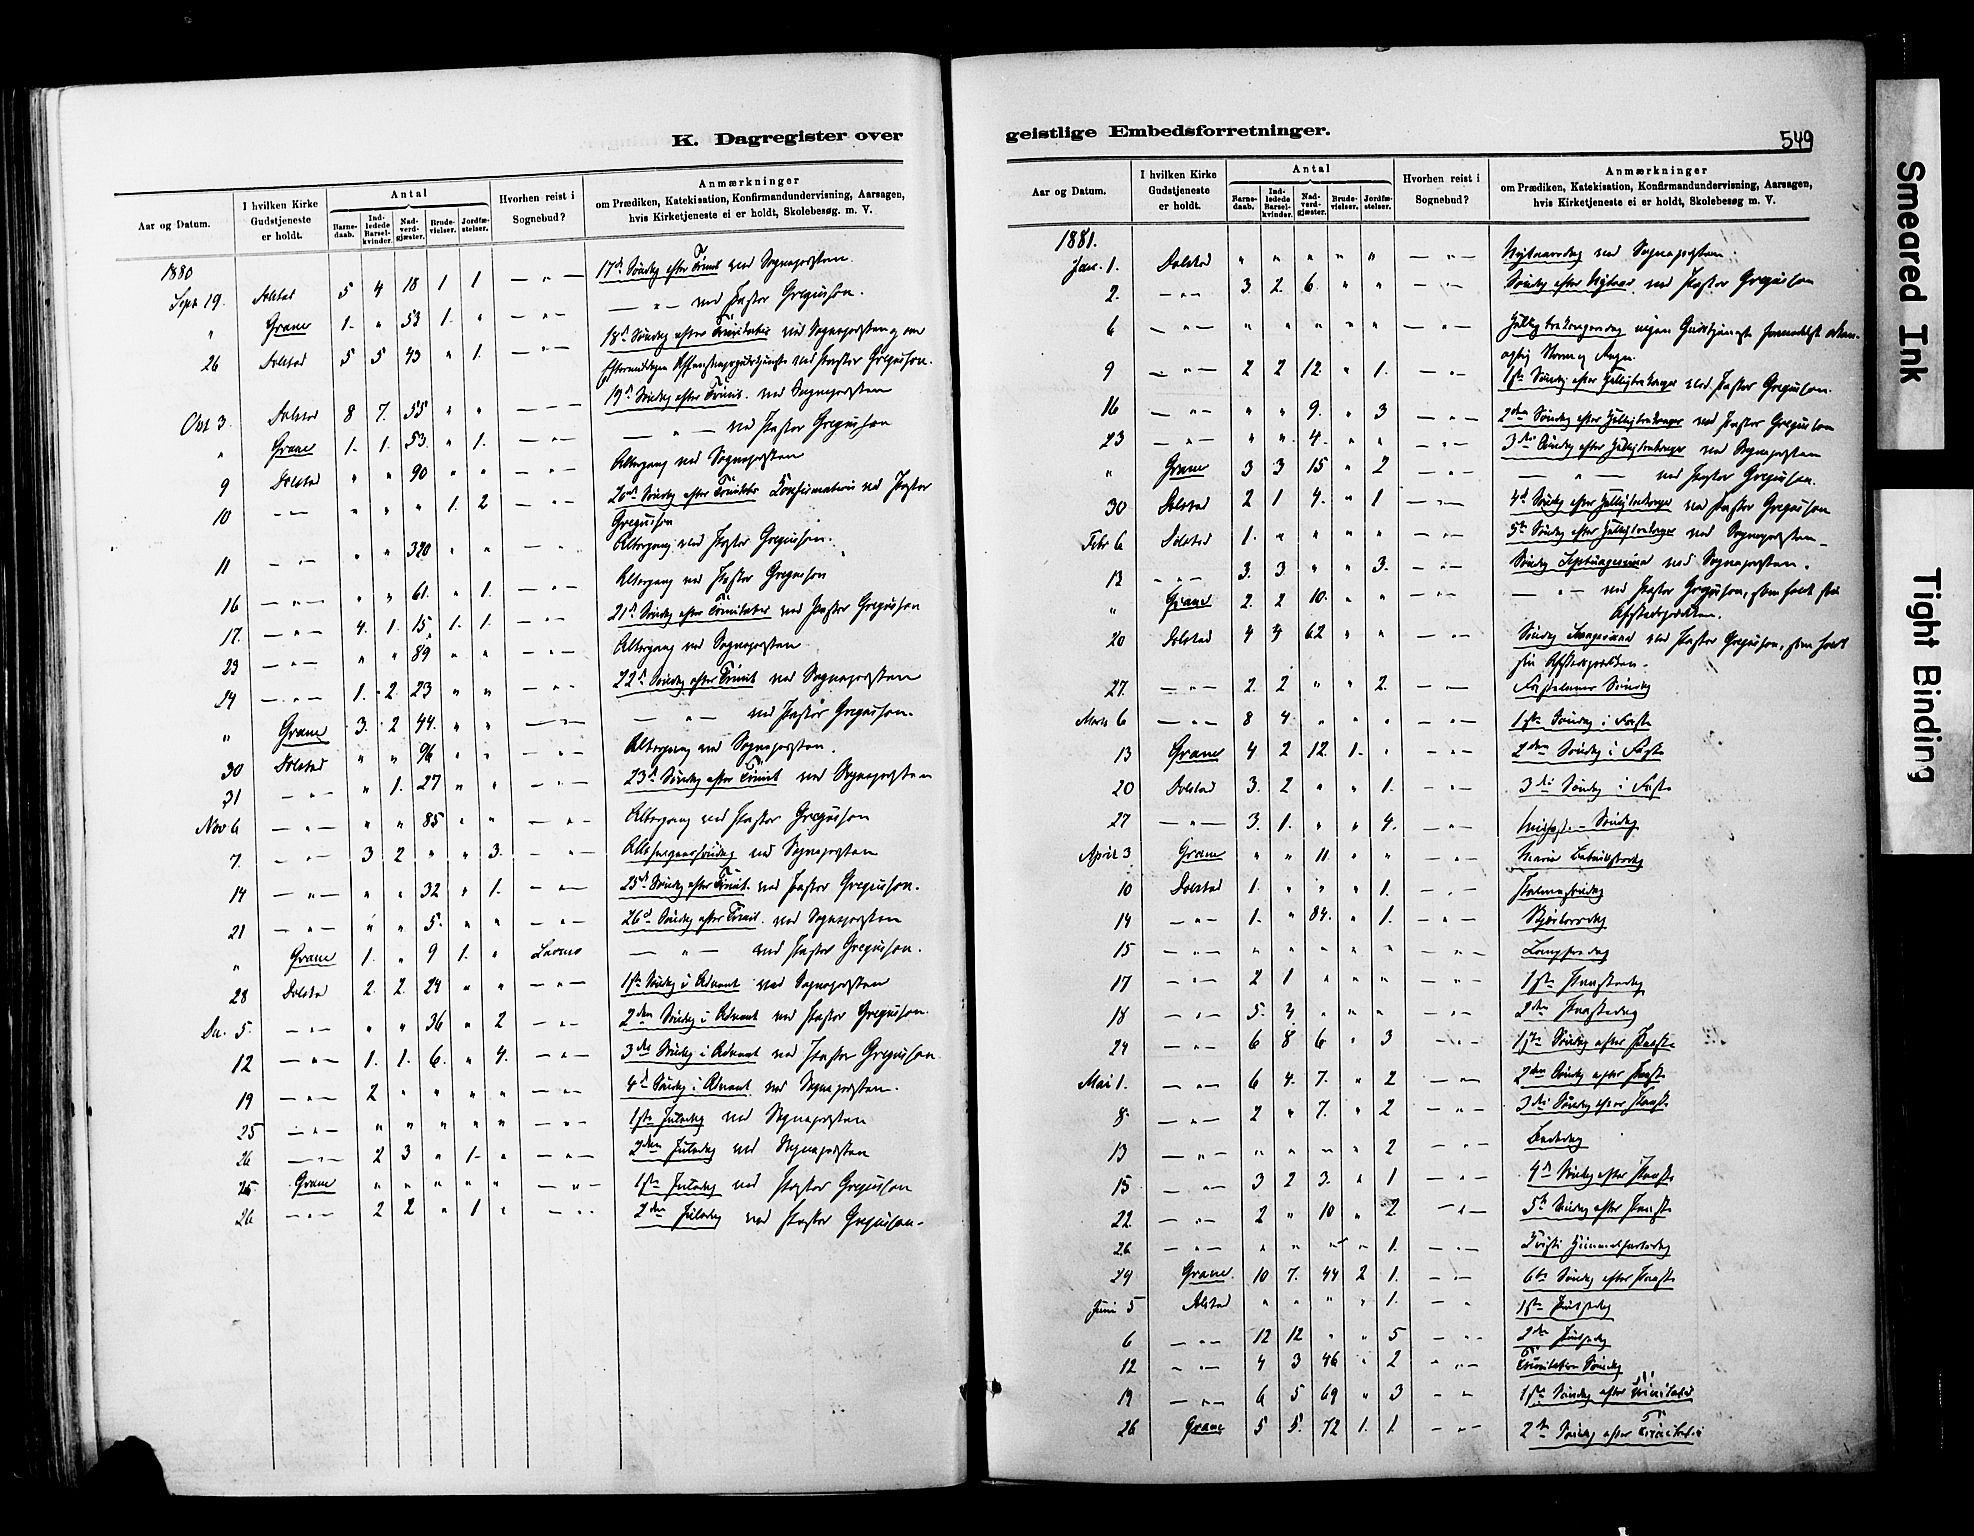 K. Dagregister over
Aar og Datum.
I hvilken Kirke Gudstjeneste er holdt.
Antal
Barne-daab.
Ind-ledede Barsel-kvinder.
Nad-verd-gjæster.
Brude-vielser.
Jordfæ-stelser.
Hvorhen reist i Sognebud?
Anmærkninger
om Prædiken, Katekisation, Konfirmandundervisning, Aarsagen,
hvis Kirketjeneste ei er holdt, Skolebesøg. m. V.
1880
Sept 19. Dolstad 5 4 18 1 1 — " — 17de Søndag efter Trinit ved Sognepresten.
" Grane 1. " 53 1. " — " — — " — ved Pastor Greguson.
26 Dolstad 5 5 43 " 1. — " — 18de Søndag efter Trinitatis ved Sognepresten og om
Eftermiddagen ved Pastor Greguson.
Oct 3. Dolstad 8 7. 55 " " — " — 19de Søndag efter Trinit. ved Sognepresten
" Grane 1. 1. 53. " 1. — " — — " — ved Pastor Greguson
9 Dolstad " " 90 " " — " — Altergang ved Sognepresten
10 — " — " " " 1. 2 — " — 20de Søndag efter Trinitatis Konfirmation ved Pastor
Greguson
11 — " — " " 320 " " — " — Altergang ved Pastor Greguson.
16 — " — " " 61. " 1. — " — Altergang ved Pastor Greguson
17. — " — 4. 1. 15 1. 1. — " — 21de Søndag efter Trinitatis ved Pastor Greguson
23 — " — " " 89 " " — " — Altergang ved Sognepresten
24 — " — 1. 2. 23 " " — " — 22de Søndag efter Trinit ved Sognepresten
" Grane 3. 2 44. " " — " — — " — ved Pastor Greguson.
30 Dolstad " " 96 " " — " — Altergang ved Sognepresten.
31 — " — " 1. 27 " " — " — 23de Søndag efter Trinit ved Sognepresten
Nov 6 — " — " " 85 " " — " — Altergang ved Pastor Greguson
7. — " — 3 2 " " 3. — " — Allehelgenssøndag ved Sognepresten
14 — " — " " 32 " 1. — " — 25de Søndag efter Trinit. ved Pastor Greguson.
21 — " — " " 5. " " — " — 26de Søndag efter Trinit. ved Sognepresten
" Grane 1. " 9 1. " — " — ved Pastor Greguson.
28 Dolstad 2. 2. 24 " " — " — 1ste Søndag i Advent ved Sognepresten
Dec. 5. — " — " " 36 " 2 — " — 2den Søndag i Advent ved Pastor Greguson.
12 — " — 1. 1. 6. " 4. — " — 3die Søndag i Advent ved Pastor Greguson
19 — " — 2 " " " " — " — 4de Søndag i Advent ved Sognepresten.
25 — " — " " " " " — " — 1ste Juledag ved Sognepresten
26 — " — 2 3 " 1. " — " — 2den Juledag ved Sognepresten
25 Grane " " " " " — " — 1ste Juledag ved Pastor Greguson
26 — " — 2 2 " 1 " — " — 2den Juledag ved Pastor Greguson.
geistlige Embedsforretninger.
549
Aar og Datum.
I hvilken Kirke Gudstjeneste er holdt.
Antal
Barne-daab.
Ind-ledede Barsel-kvinder.
Nad-verd-gjæster.
Brude-vielser.
Jordfæ-stelser.
Hvorhen reist i Sognebud?
Anmærkninger
om Prædiken, Katekisation, Konfirmandundervisning, Aarsagen,
hvis Kirketjeneste ei er holdt, Skolebesøg m. V.
1881.
Jan. 1. Dolstad " " " " " — " — Nytaarsdag ved Sognepresten.
2. — " — 3. 2. 6. " " — " — Søndag efter Nytaar ved Pastor Greguson
6 — " — " " " " " — " — Helligtrekongersdag ingen Gudstjeneste formedelst
Storm og Regn.
9 — " — 2 2 12. " 1. — " — 1ste Søndag efter Helligtrekonger ved Pastor Greguson.
16 — " — " " 9. " 3 — " — 2den Søndag efter Helligtrekonger ved Pastor Greguson
23 — " — " " 4. " " — " — 3die Søndag efter Helligtrekonger ved Sognepresten
" Grane 3 3 15 " 2 — " — — " — ved Pastor Greguson.
30 Dolstad 2 1 4. " 1 — " — 4de Søndag efter Helligtrekonger ved Pastor Greguson
Febr 6 Dolstad 1. " " " " — " — 5te Søndag efter Helligtrekonger ved Sognepresten
13 — " — 3. 3 " " 3. — " — Søndag Septuagesima ved Sognepresten.
" Grane 2. 2 10. " " — " — — " — ved Pastor Greguson, som holdt sin
Afskedspræken.
20 Dolstad 4 4 62 " " — " — Søndag Sexagesima ved Pastor Greguson, som holdt
sin Afskedspræken.
27. — " — 2. 2 " " 2. — " — Fastelavns Søndag
Marts 6 — " — 8 4 " " " — " — 1ste Søndag i Faste
13 Grane 4 2 12. 1. " — " — 2den Søndag i Faste
20 Dolstad 3. 2 " " 1. — " — 3die Søndag i Faste
27 — " — 3. 1. " " 4. — " — Midfaste-Søndag
April 3 Grane " " 11. " " — " — Mariæ Bebudelsesdag
10 Dolstad 1. " " " 1. — " — Palmesøndag
14 — " — 1. " 84. " 1. — " — Skjærtorsdag
15 — " — " " " " " — " — Langfredag
17 — " — 2 1 " " " — " — 1ste Paaskedag
18 — " — 5. 4 " " " — " — 2den Paaskedag
24 — " — 6 8 6 " 3 — " — 1ste Søndag efter Paaske
Mai 1. — " — 6 4. 7. " 2 — " — 2den Søndag efter Paaske
8. — " — 2 " 7. " 2 — " — 3die Søndag efter Paaske
13 — " — " " " " 2 — " — Bededag
15 — " — 3 2 3. " 1 — " — 4de Søndag efter Paaske
22 — " — 2 " 10 " 2 — " — 5te Søndag efter Paaske
26 — " — " " " " 1. — " — Kristi Himmelfartsdag
29 Grane. 10 7. 44 2 1. — " — 6te Søndag efter Paaske
Juni 5 Dolstad " " " " 1. — " 1ste Pintsedag
6 — " — 12 12 " " 5 — " — 2den Pintsedag
12 — " — 4 3 46 " 2 — " — Trinitatis Søndag
19 — " — 6 5 69 " 3 — " — 1ste Søndag efter Trinitatis
26 Grane 5 5. 72 1. 1 — " — 2den Søndag efter Trinitatis
Smeared Ink
Tight Binding